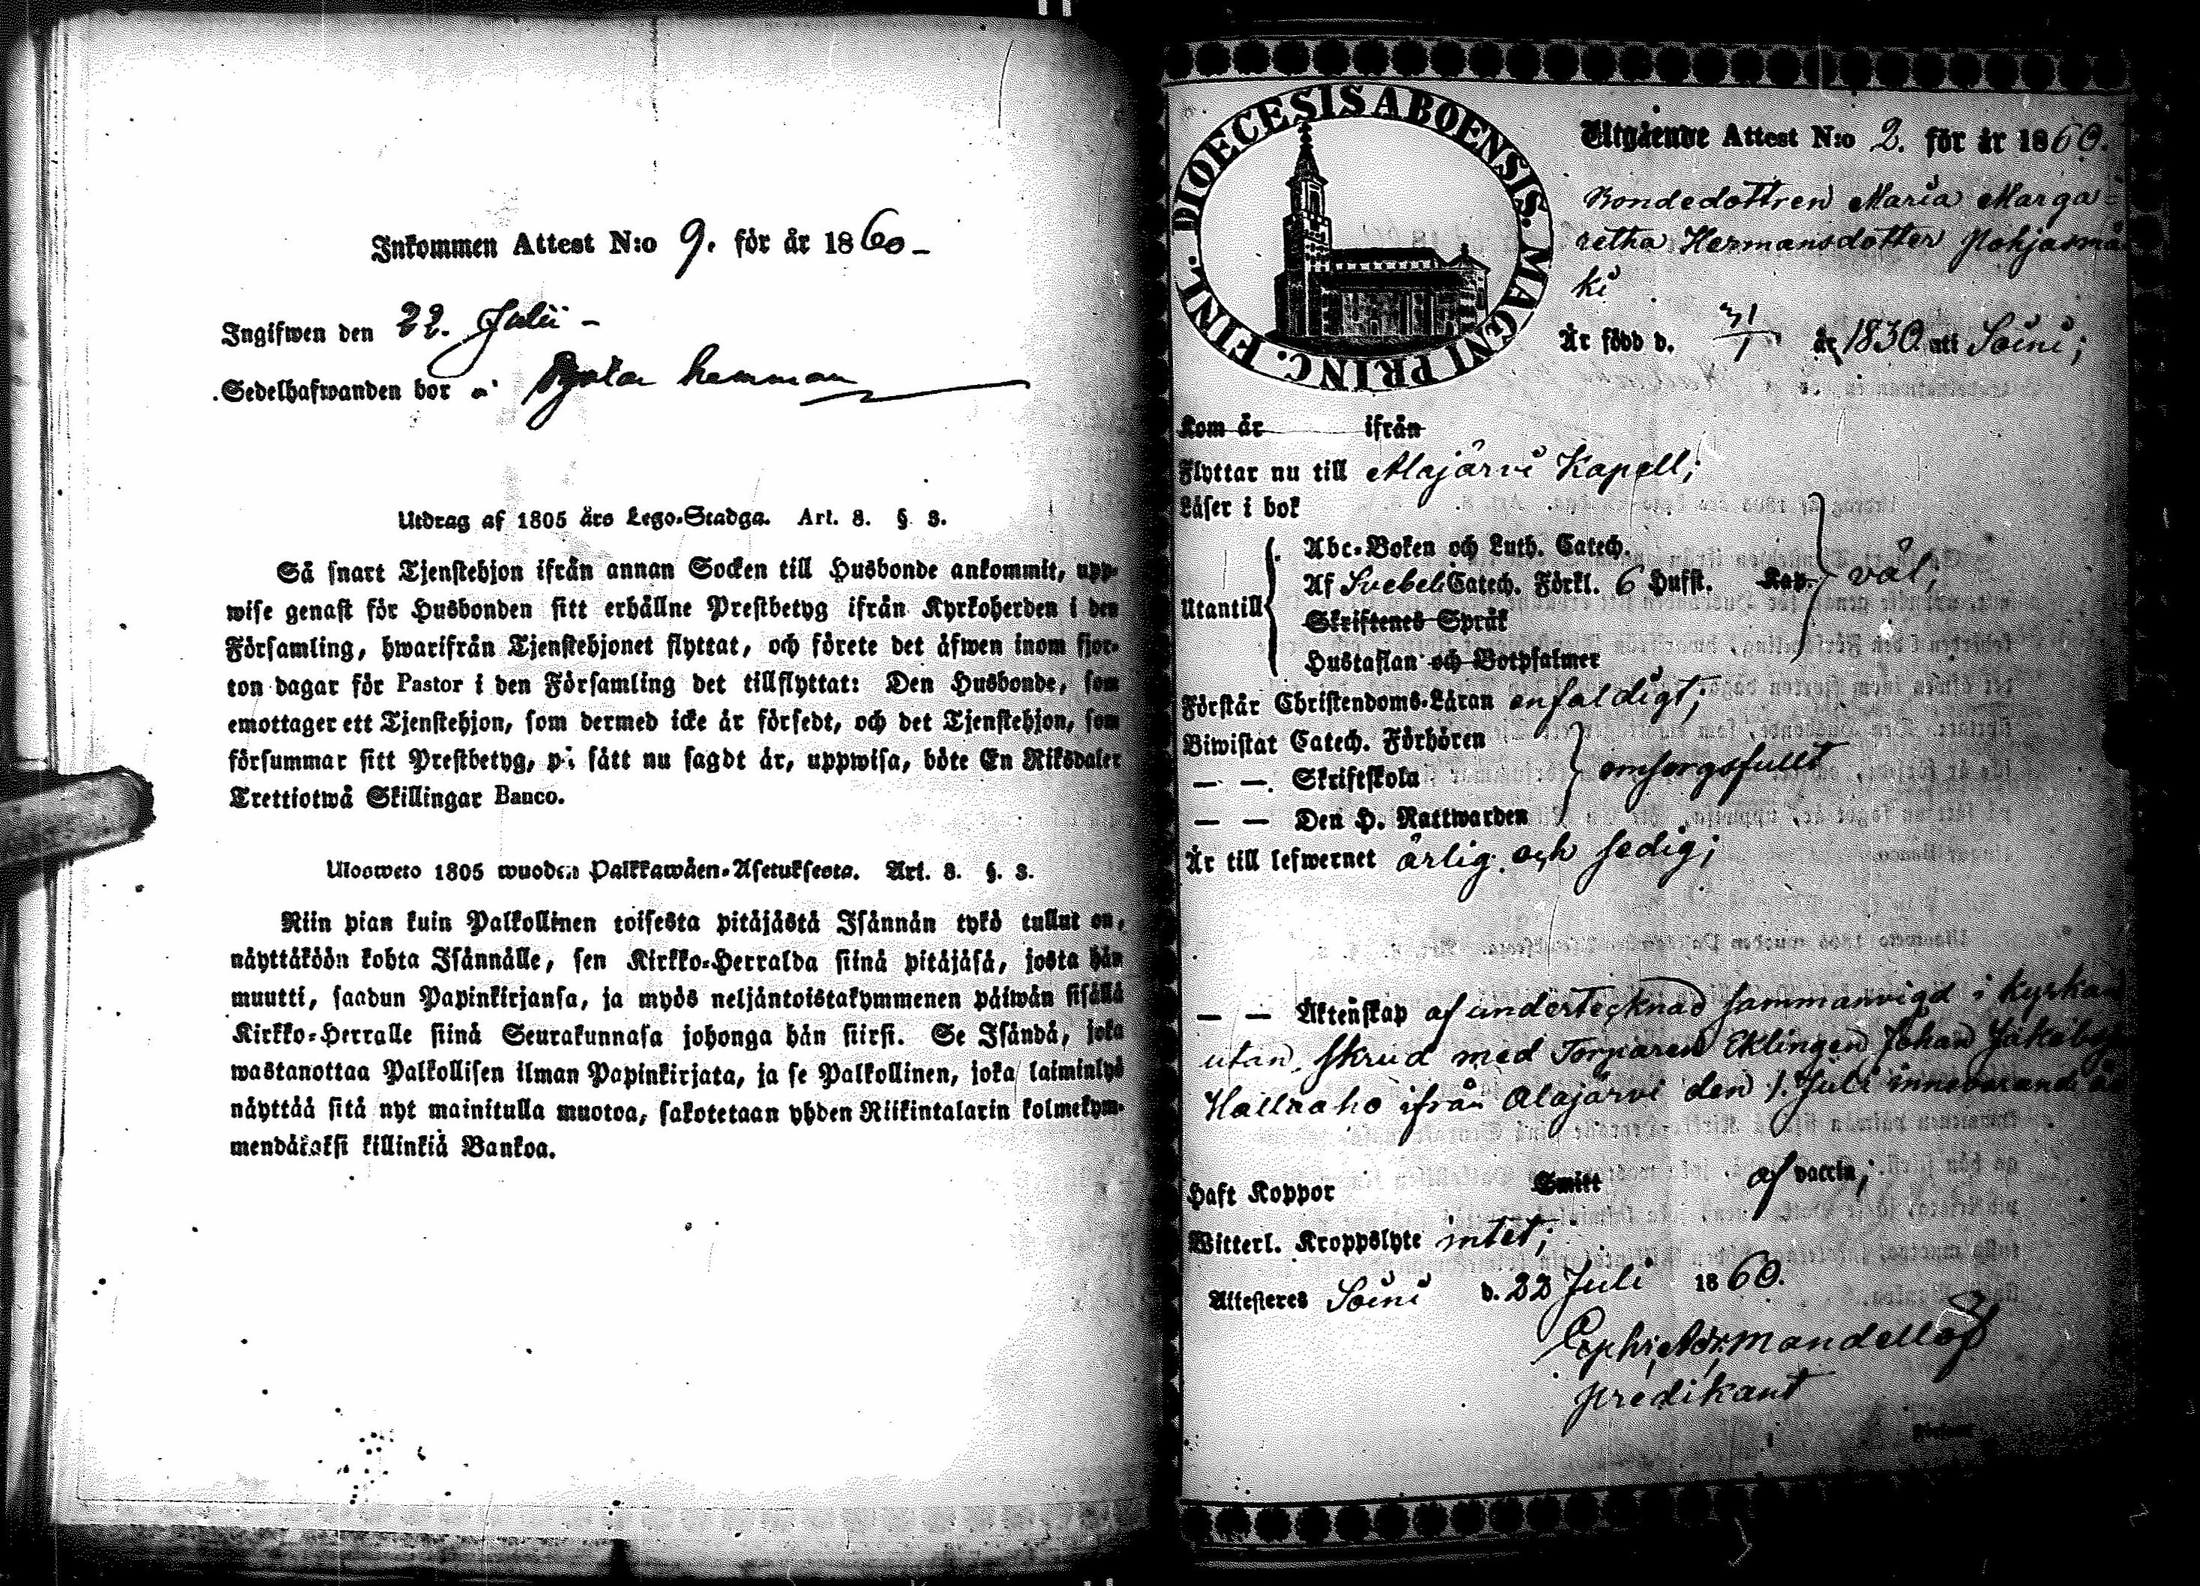 Inkommen Attest N:o 9. för år 1860 –
Ingifwen den 22. Julii –
Sedelhafwanden bor å hemman
Utdrag af 1805 års Lego-Stadga. Art. 8. § 3.
Så snart Tjenstehjon ifrån annan Socken till Husbonde ankommit, upp-
wise genast för Husbonden sitt erhållne Prestbetyg ifrån Kyrkoherden i den
Församling, hwarifrån Tjenstehjonet flyttat, och förete det äfwen inom fjor-
ton dagar för Pastor i den Församling det tillflyttat: Den Husbonde, som
emottager ett Tjenstehjon, som dermed icke är försedt, och det Tjenstehjon, som
försummar sitt Prestbetyg, på sätt nu sagdt är, uppwisa, böte En Riksdaler
Trettiotwå Skillingar Banco.
Ulosweto 1805 wuoden Palkkawäen-Asetuksesta. Art. 8. §. 3.
Niin pian kuin Palkollinen toisesta pitäjästä Isännän tykö tullut on,
näyttäköön kohta Isännälle, sen Kirkko-Herralda siinä pitäjäsä, josta hän
muutti, saadun Papinkirjansa, ja myös neljäntoistakymmenen päiwän sisällä
Kirkko-Herralle siinä Seurakunnasa johonga hän siirsi. Se Isändä, joka
wastanottaa Palkollisen ilman Papinkirjata, ja se Palkollinen, joka laiminlyö
näyttää sitä nyt mainitulla muotoa, sakotetaan yhden Riikintalarin kolmekym-
mendäkaksi killinkiä Bankoa.
DIOECESIS ABOENSIS. MAGNI PRINC. FINL.
Utgående Attest N:o 2. för år 1860.
Bondedottren Maria Marga-
retha Hermansdotter Pohjasmä
ki
Är född d. 31/1 år 1830 uti Soini;
Kom år ifrån
Flyttar nu till Alajärvi Kapell;
Läser i bok
Abc-Boken och Luth. Catech.
Utantill Af Svebeli Catech. Förkl. 6 Hufst. Kap. väl;
Skriftenes Språk
Hustaflan och Botpsalmer
Förstår Christendoms-Läran enfaldigt,
Biwistat Catech. Förhören
— — Skriftskola omsorgsfullt
— — Den H. Nattwarden
Är till lefwernet ärlig och sedig;
— — Äktenskap af undertecknad sammanvigd i kyrkan
utan skrud med Torparen Enklingen Johan Jakobss
Hallraho ifrån Alajärvi den 1. Juli innevarande år
Haft Koppor Smitt af vaccin;
Witterl. Kroppslyte intet;
Attesteras Soini d. 22 Juli 1860.
Mandellöf
predikant